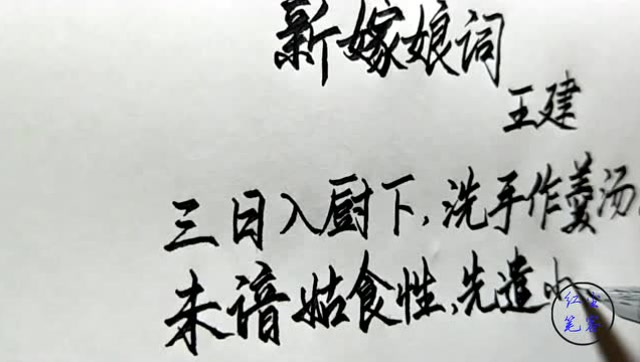 新嫁娘词
王建
三日入厨下,洗手作羹汤
未谙姑食性,先遣小
红尘
笔客